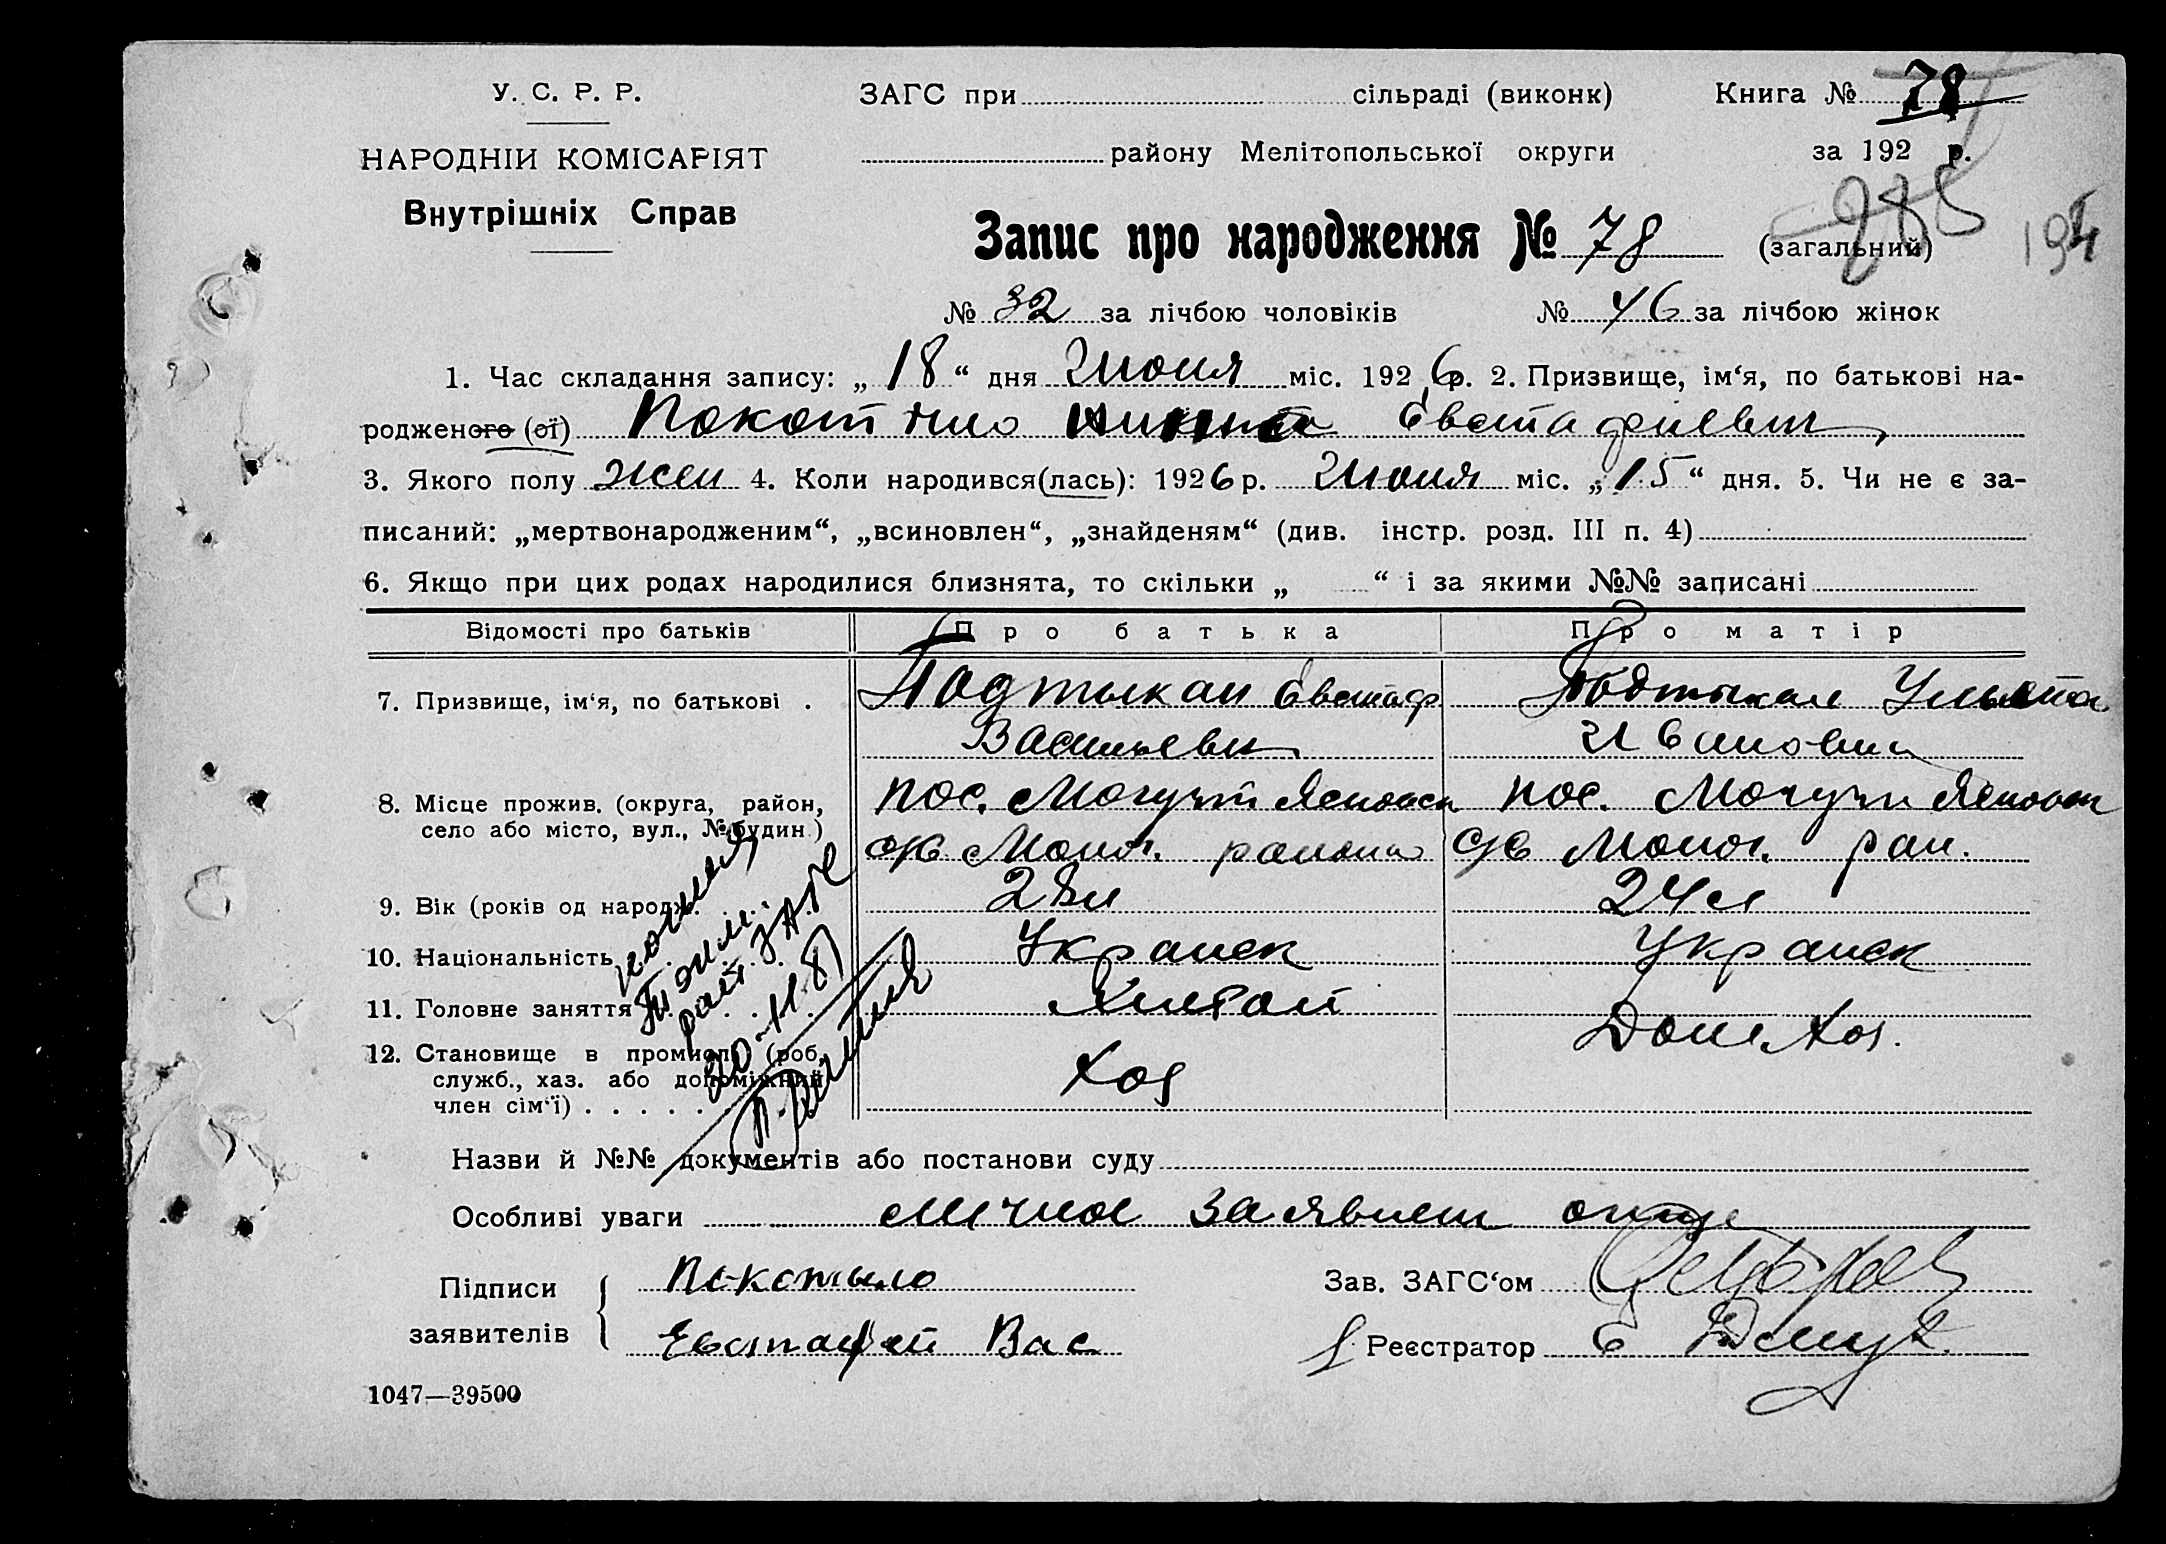 У. С. Р. Р.
НАРОДНІЙ КОМІСАРІЯТ
Внутрішніх Справ
ЗАГС при сільраді (виконк) Книга № 78
району Мелітопольської округи за 192 р.
285
Запис про народження № 78 (загальний)
№ 32 за лічбою чоловіків № 46 за лічбою жінок
1. Час складання запису: „ 18 “ дня Июня міс. 192 6 р. 2. Призвище, ім‘я, по батькові на-
родженого (ої) Покотило Евстафиевт
3. Якого полу жен 4. Коли народився(лась): 1926 р. Июня міс. „ 15 “ дня. 5. Чи не є за-
писаний: „мертвонародженим“, „всиновлен“, „знайденям“ (див. інстр. розд. III п. 4)
6. Якщо при цих родах народилися близнята, то скільки „ “ і за якими №№ записані
Відомості про батьків Про батька Про матір
7. Призвище, ім‘я, по батькові . Подтыкан Евстаф Подтыкан
Васильевич Ивановна
8. Місце прожив. (округа, район, пос. Могучий пос. Могучи
село або місто, вул., № будин.) с/в района с/в рай.
9. Вік (років од народж. 28л 24л
10. Національність Украиск Украиск
11. Головне заняття Дом хоз.
12. Становище в промисл. (роб, Хоз
служб., хаз. або допоміжний
член сім‘ї)
райЗАГС
20-11-87
Назви й №№ документів або постанови суду
Особливі уваги личное заявлен отца
Підписи заявителів Покотыло
Евстафей Вас
Зав. ЗАГС‘ом
Реєстратор
1047—39500